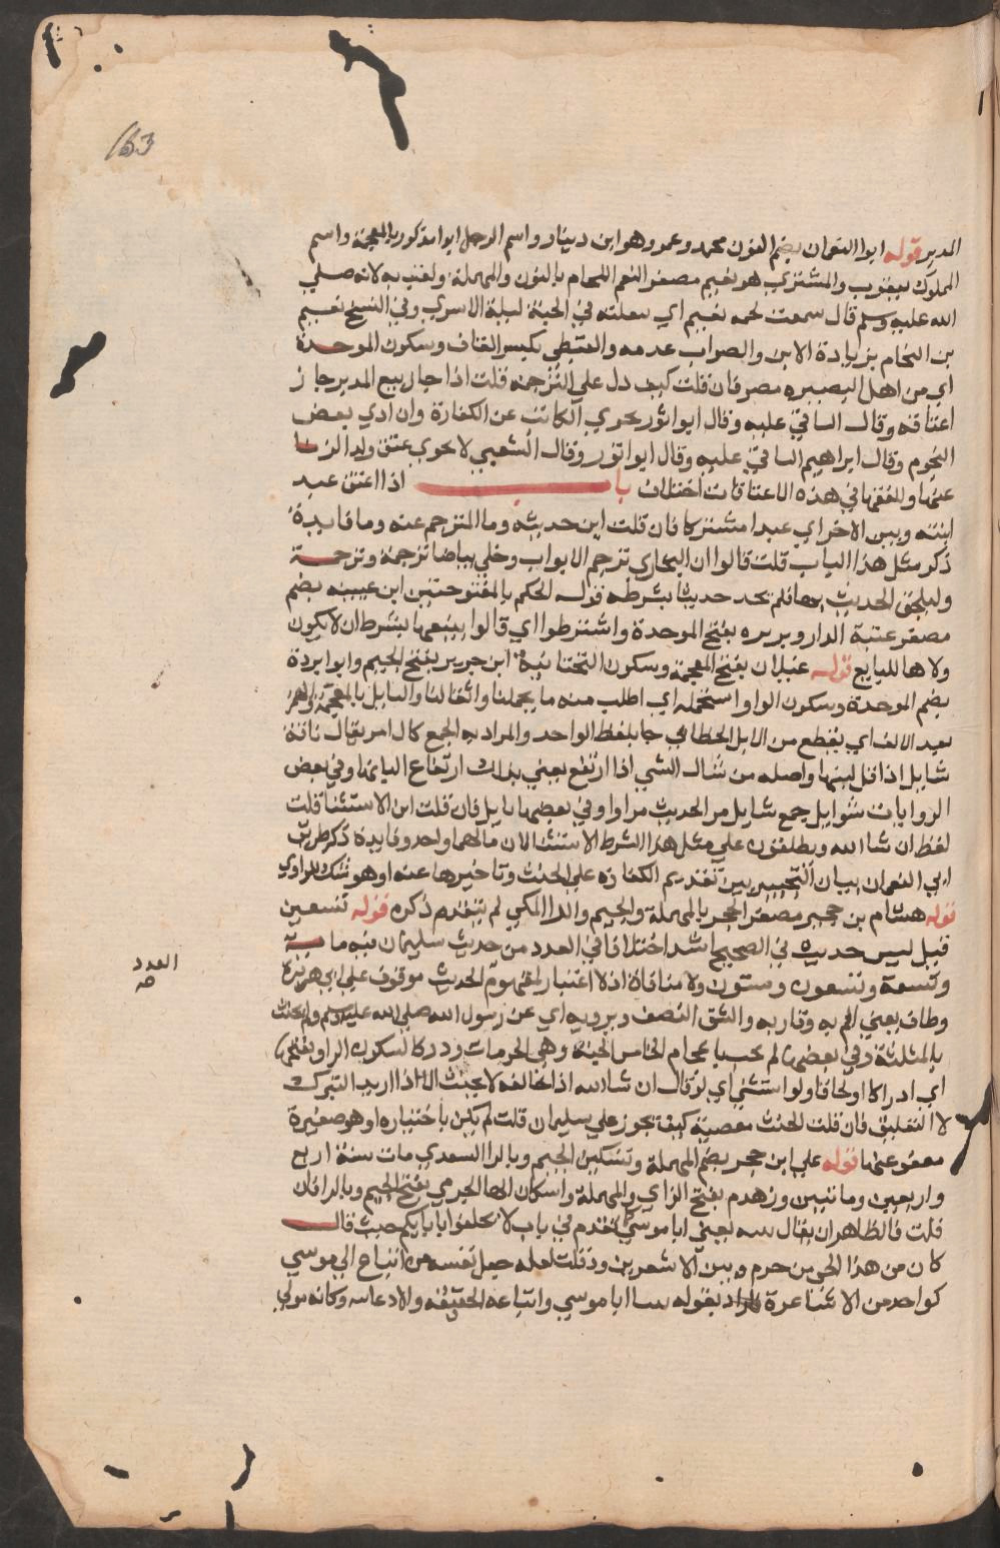 163
المدبر قوله ابوا النعمان بضم النون محمد وعمرو هو ابن دينار واسم الرجل ابوا مذكور بالمعجمة واسم
المملوك يعقوب والمشتري هو نعيم مصغر النعم النحام بالنون والمهملة ولقب به لانه صلي
الله عليه وسلم قال سمعت نحمة نعيم اي سعلته في الجنة ليلة الاسري وفي النسخ نعيم
بن النحام بزيادة الابن والصواب عدمه والقبطي بكسر القاف وسكون الموحدة
اي من اهل مصر فان قلت كيف دل علي الترجمة قلت اذا جاز بيع المدبر جاز
اعتاقه وقال الباقي عليه وقال ابوا ثور يجزي المكاتب عن الكفارة وان ادي بعض
النجوم وقال ابراهيم الباقي عليه وقال ابوا ثور وقال الشعبي لا يجزي عتق ولد الزنا
عنها وللفقها في هذه الاعتاقات اختلاف باب اذا اعتق عبد
ابينه وبين الاخر اي عبدا مشتركا فان قلت اين حديثه وما المترجم عنه وما فايدة
ذكر مثل هذا الباب قلت قالوا ان البخاري ترجم الابواب وخلي بياضا ترجمة وترجمة
وليلحق الحديث بها فلم يجد حديثا بشرطه قوله الحكم بالمفتوحتين ابن عيينه بضم
مصغر عتبة الدار وبريره بفتح الموحدة واشترطوا اي قالوا يبيعها بشرط ان لا يكون
ولاها للبايع قوله غيلان بفتح المعجمة وسكون التحتانية ابن جرير بفتح الجيم وابوا بردة
بضم الموحدة وسكون الواو استحمله اي اطلب منه ما يحملنا واثقالنا والشايل بالمعجمة والهمز
بعد الالف اي بقطع من الابل الخطابي جا بلفظ الواحد والمراد به الجمع كالسامر يقال ناقة
شايل اذا قل لبنها واصله من شال الشي اذا ارتفع يعني بذلك ارتفاع البانها وفي بعض
الروايات شوايل جمع شايل من الحديث مرارا وفي بعضها بابل فان قلت اين الاستثنا قلت
لفظ ان شا الله ويطلقون علي مثل هذا الشرط الاستثنا لان مالهما واحد وفايدة ذكر طريق
ابي النعمان بيان التخيير بين تقديم الكفارة علي الحنث وتاخيرها عنه او هو شك الراوي
قوله هشام بن حجير مصغر الحجر بالمهملة والجيم والرا المكي لم يتقدم ذكره قوله تسعين
قيل ليس حديث في الصحيح اشد اختلافا في العدد من حديث سليمان فيه ماية
العدد صح
وتسعة وتسعون وستون ولا منافاة اذ لا اعتبار لمفهوم الحديث موقوف علي ابي هريرة
وطاف يعني الم به وقاربه والشق النصف ويرويه اي عن رسول الله صلي الله عليه وسلم ولم يحنث
بالمثلثة وفي بعضها لم يخب باعجام الخا من الخيبة وهي الحرمان ودركا لسكون الراو بفتحها
اي ادراكا او لحاقا ولو استثني اي لو قال ان شا الله اذ لا يحنث الا اذا اريد التبرك
لا التعليق فان قلت الحنث معصية كيف تجوز علي سليمان قلت لم يكن باختياره او هو صغيرة
معفو عنها قوله علي ابن حجر بضم المهملة وتسكين الجيم وبالرا السعدي مات سنة اربع
واربعين ومايتين وزهدم بفتح الزاي والمهملة واسكان الها الجرمي بفتح الجيم وبالرا فان
قلت فالظاهر ان يقال بينه يعني ابا موسي كما تقدم في باب لا تحلفوا بابايكم حيث قال
كان من هذا الحي من جرم وبين الاشعريين ود قلت لعله جعل نفسه من اتباع ابي موسي
كواحد من الاشاعرة فاراد بقوله بيننا ابا موسي واتباعه الحقيقة والادعاييه وكانه مولي